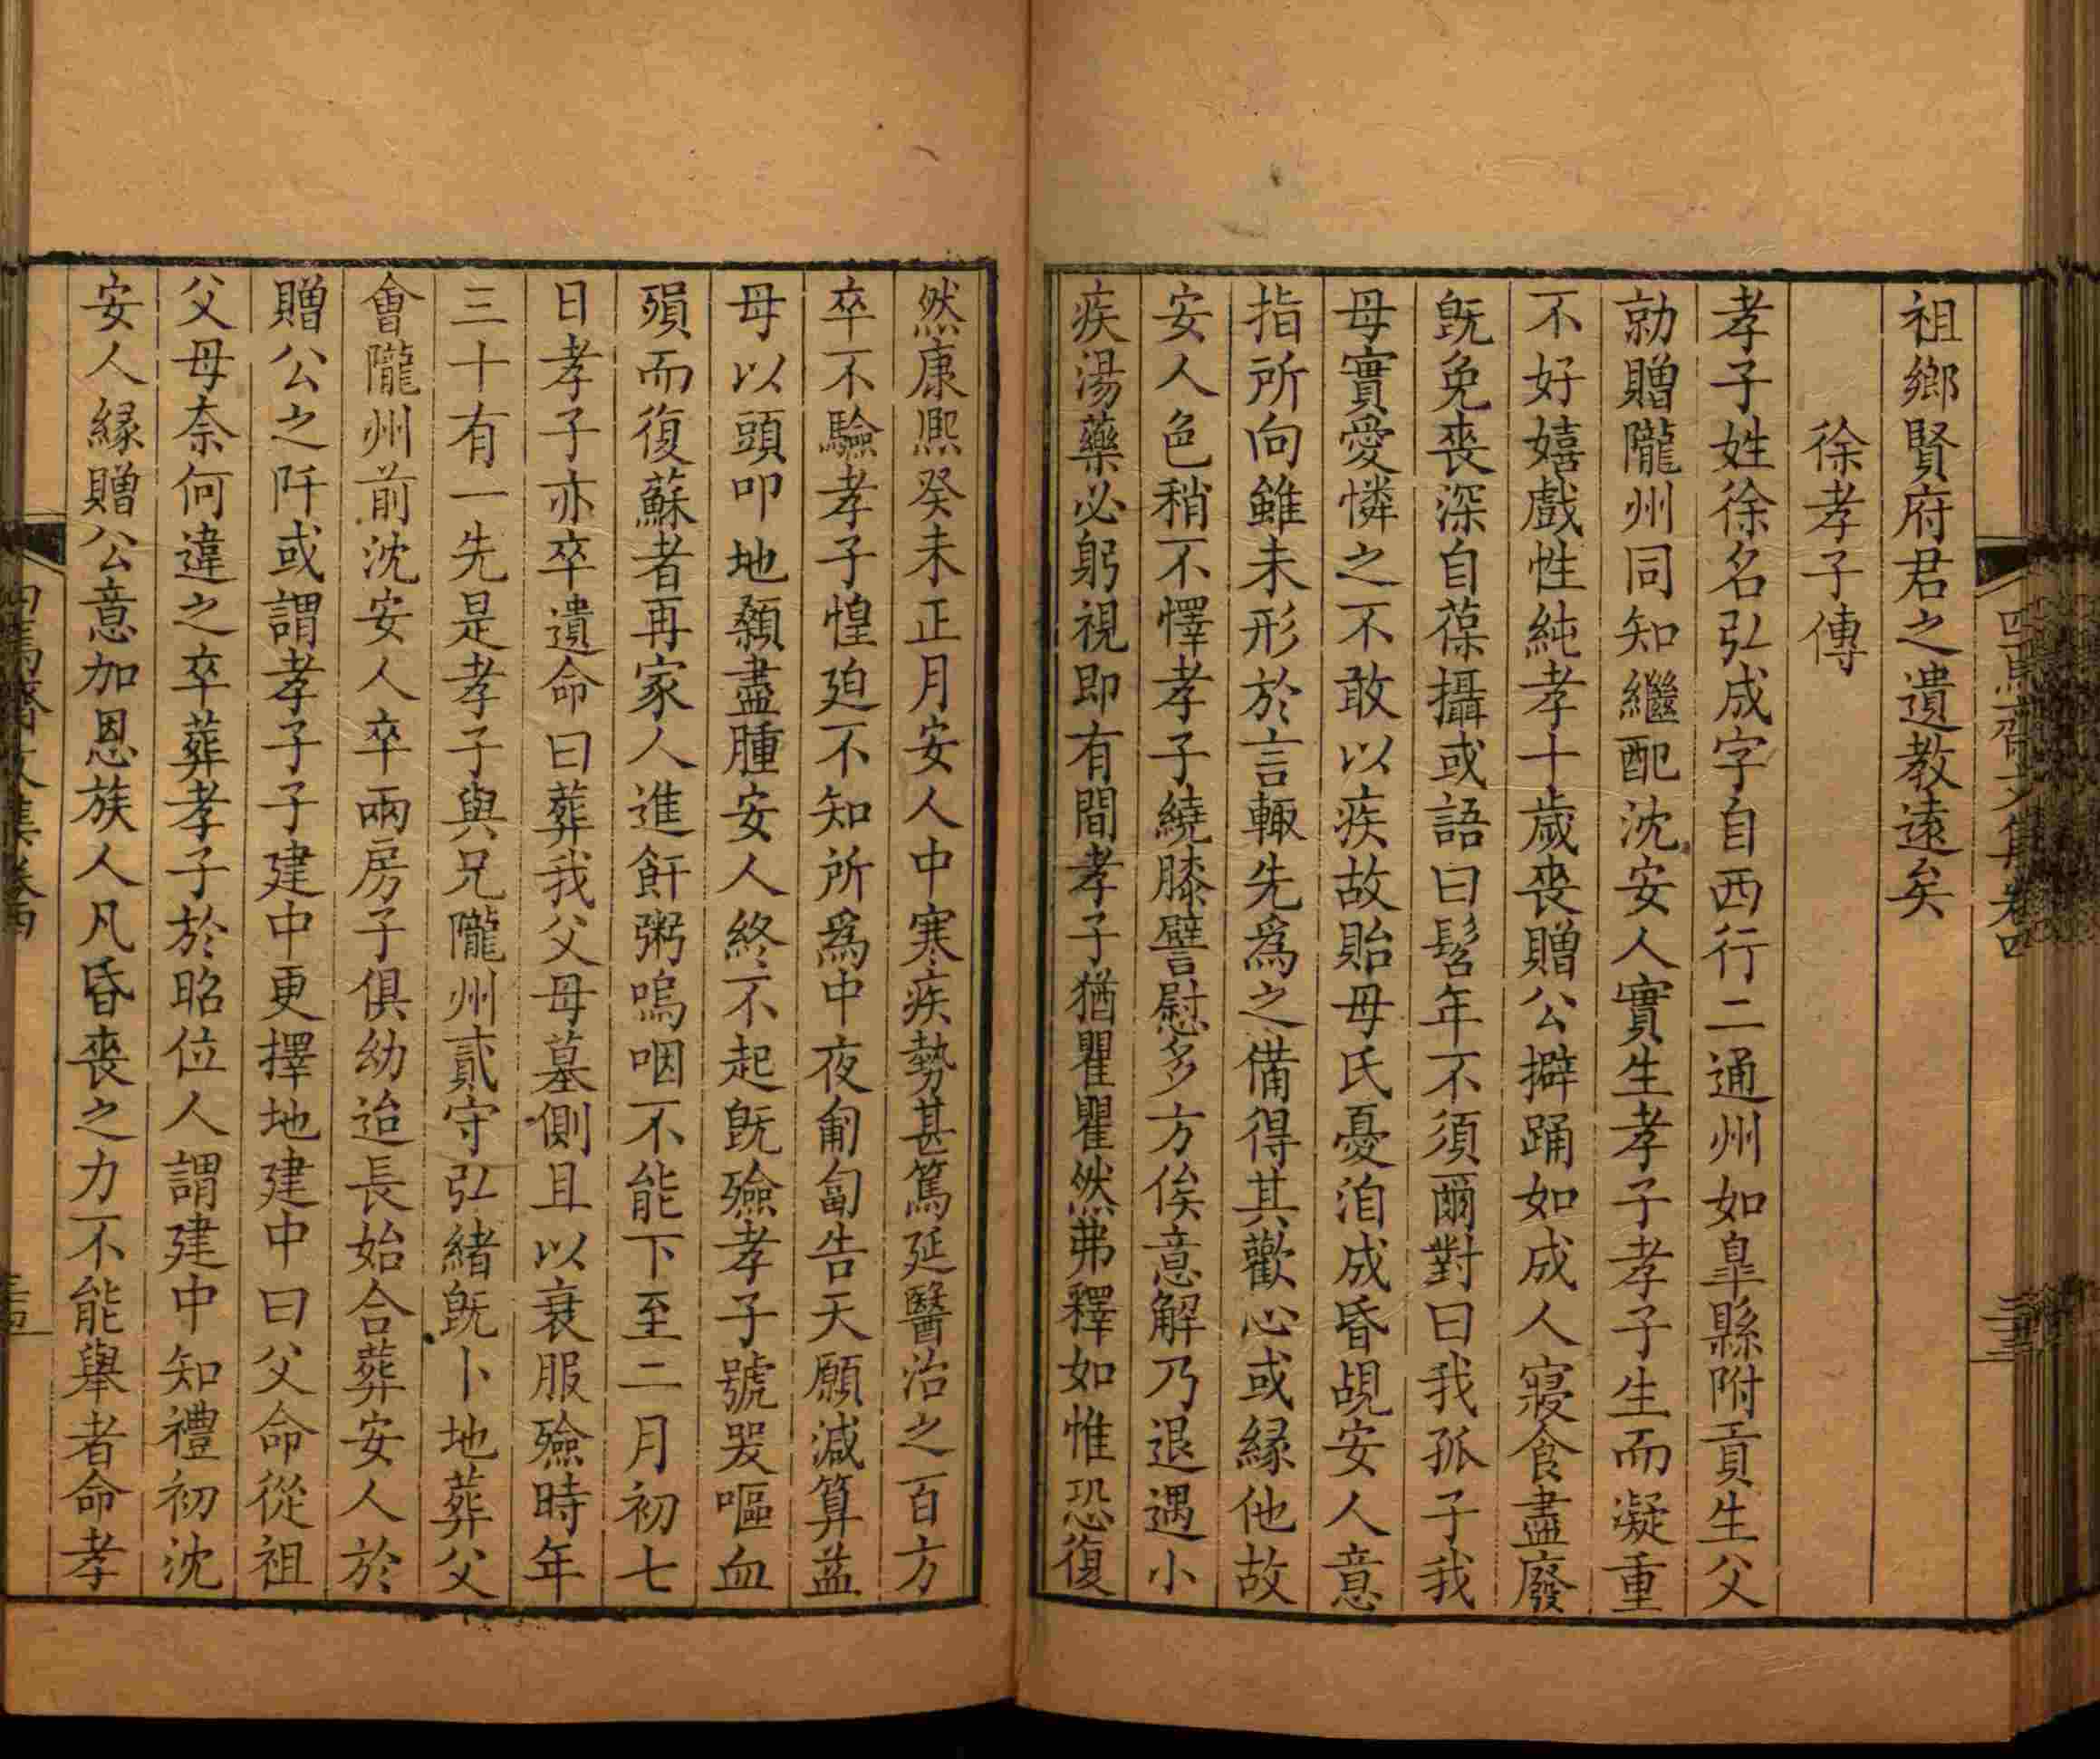 祖鄉賢府君之遺教遠矣
徐孝子傳
孝子姓徐名弘成字自西行二通州如臯縣附貢生父
勍贈隴州同知繼配沈安人實生孝子孝子生而凝重
不好嬉戲性純孝十歲喪贈公擗踊如成人寢食盡廢
旣免喪深自葆攝或語曰髫年不須爾對曰我孤子我
母實愛憐之不敢以疾故貽母氏憂洎成昏覘安人意
指所向雖未形於言輙先爲之備得其歡心或緣他故
安人色稍不懌孝子繞膝譬慰多方俟意解乃退遇小
疾湯藥必躬視即有間孝子猶瞿瞿然弗釋如惟恐復
然康熙癸未正月安人中寒疾勢甚篤延醫治之百方
卒不驗孝子惶廹不知所爲中夜匍匐告天願減算益
母以頭叩地顙盡腫安人終不起旣殮孝子號哭嘔血
殞而復蘇者再家人進飦粥嗚咽不能下至二月初七
日孝子亦卒遺命曰葬我父母墓側且以衰服殮時年
三十有一先是孝子與兄隴州貳守弘緒旣卜地葬父
會隴州前沈安人卒兩房子俱幼迨長始合葬安人於
贈公之阡或謂孝子子建中更擇地建中曰父命從祖
父母奈何違之卒葬孝子於昭位人謂建中知禮初沈
安人緣贈公意加恩族人凡昏喪之力不能舉者命孝